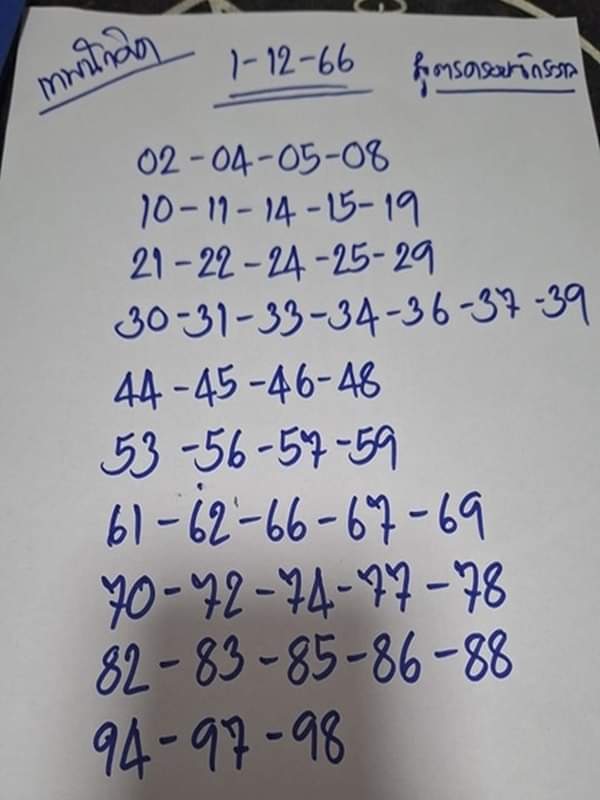 เทพนิมิต 1-12-66 สูตรครอบจักรวาล
02-04-05-08
10-11-14-15-19
21-22-24-25-29
30-31-33-34-36-37-39
44-45-46-48
53-56-57-59
61-62-66-67-69
70-72-74-77-78
82-83-85-86-88
94-97-98